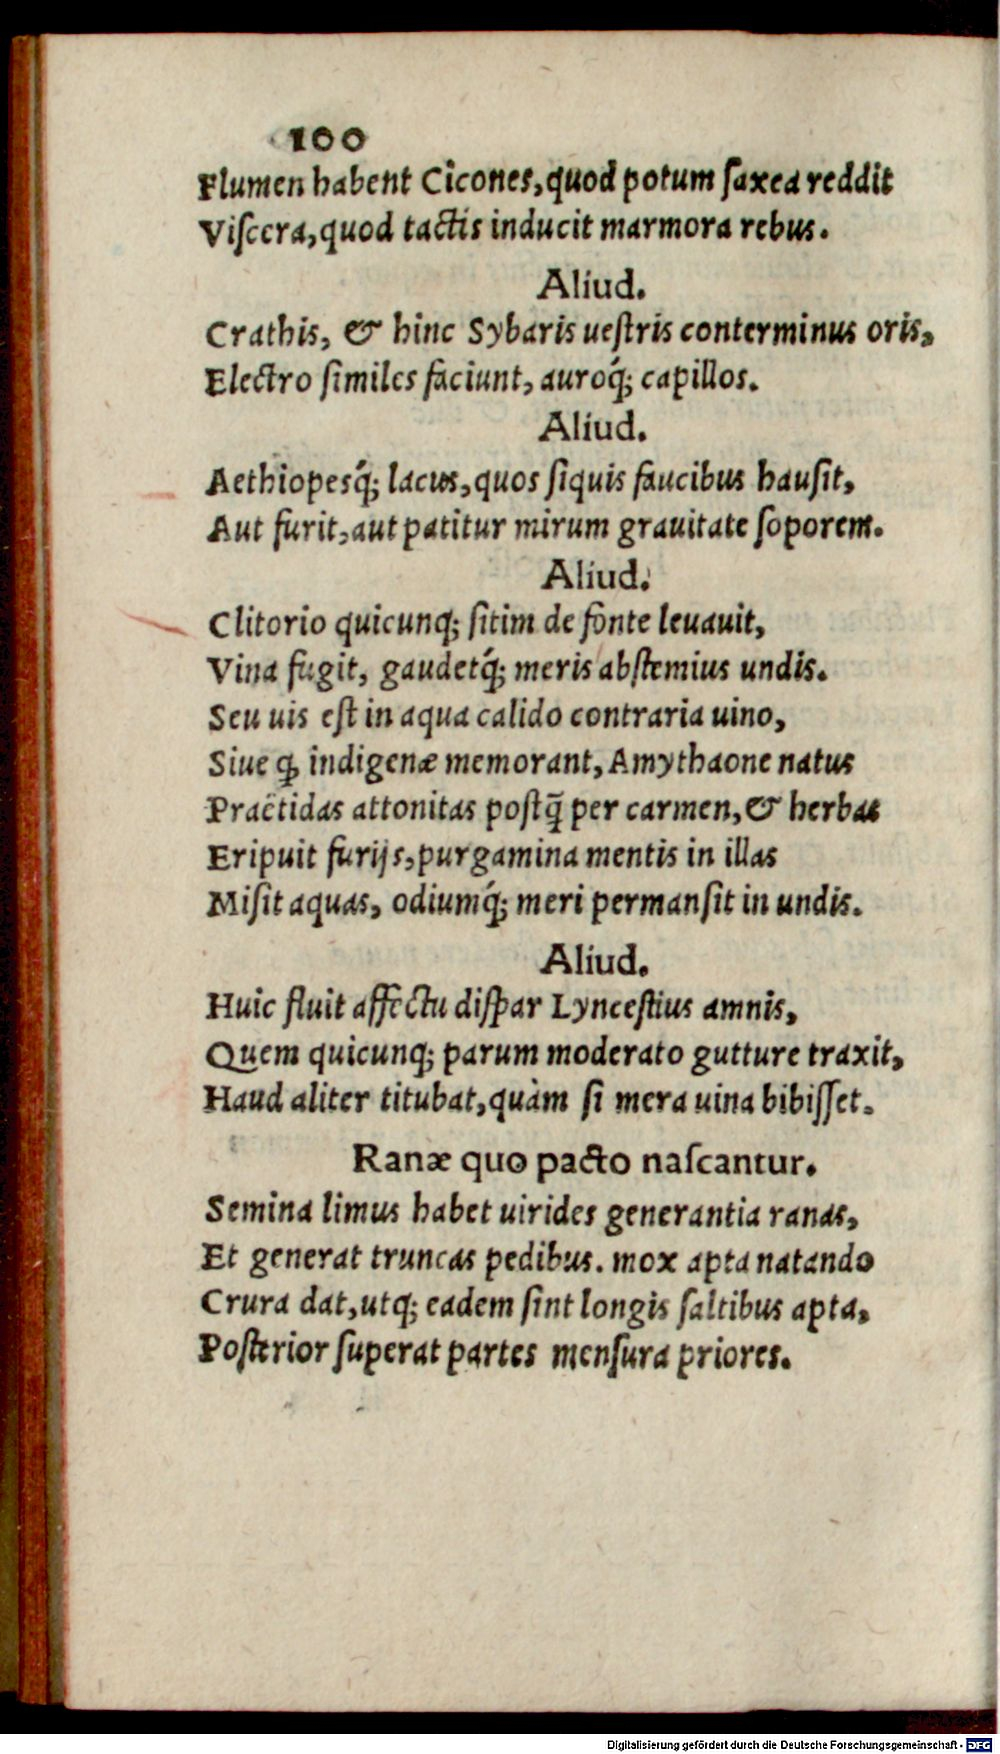 100
Flumen habent Cicones, quod potum ſaxea reddit
Viſcera, quod tactis inducit marmora rebus.
Aliud.
Crathis, & hinc Sybaris ueſtris conterminus oris,
Electro ſimiles faciunt, auroq́; capillos.
Aliud.
Aethiopesq́; lacus, quos ſiquis faucibus hauſit,
Aut furit, aut patitur mirum grauitate ſoporem.
Aliud.
Clitorio quicunq; ſitim de fonte leuauit,
Vina fugit, gaudetq́; meris abſtemius undis.
Seu uis eſt in aqua calido contraria uino,
Siue ꝙ indigenæ memorant, Amythaone natus
Praëtidas attonitas poſtq̃ per carmen, & herbas
Eripuit furijs, purgamina mentis in illas
Miſit aquas, odiumq́; meri permanſit in undis.
Aliud.
Huic fluit affectu diſpar Lynceſtius amnis,
Quem quicunq; parum moderato gutture traxit,
Haud aliter titubat, quàm ſi mera uina bibiſſet.
Ranæ quo pacto naſcantur.
Semina limus habet uirides generantia ranas,
Et generat truncas pedibus. mox apta natando
Crura dat, utq; eadem ſint longis ſaltibus apta,
Poſterior ſuperat partes menſura priores.
Digitalisierung gefördert durch die Deutsche Forschungsgemeinschaft - DFG